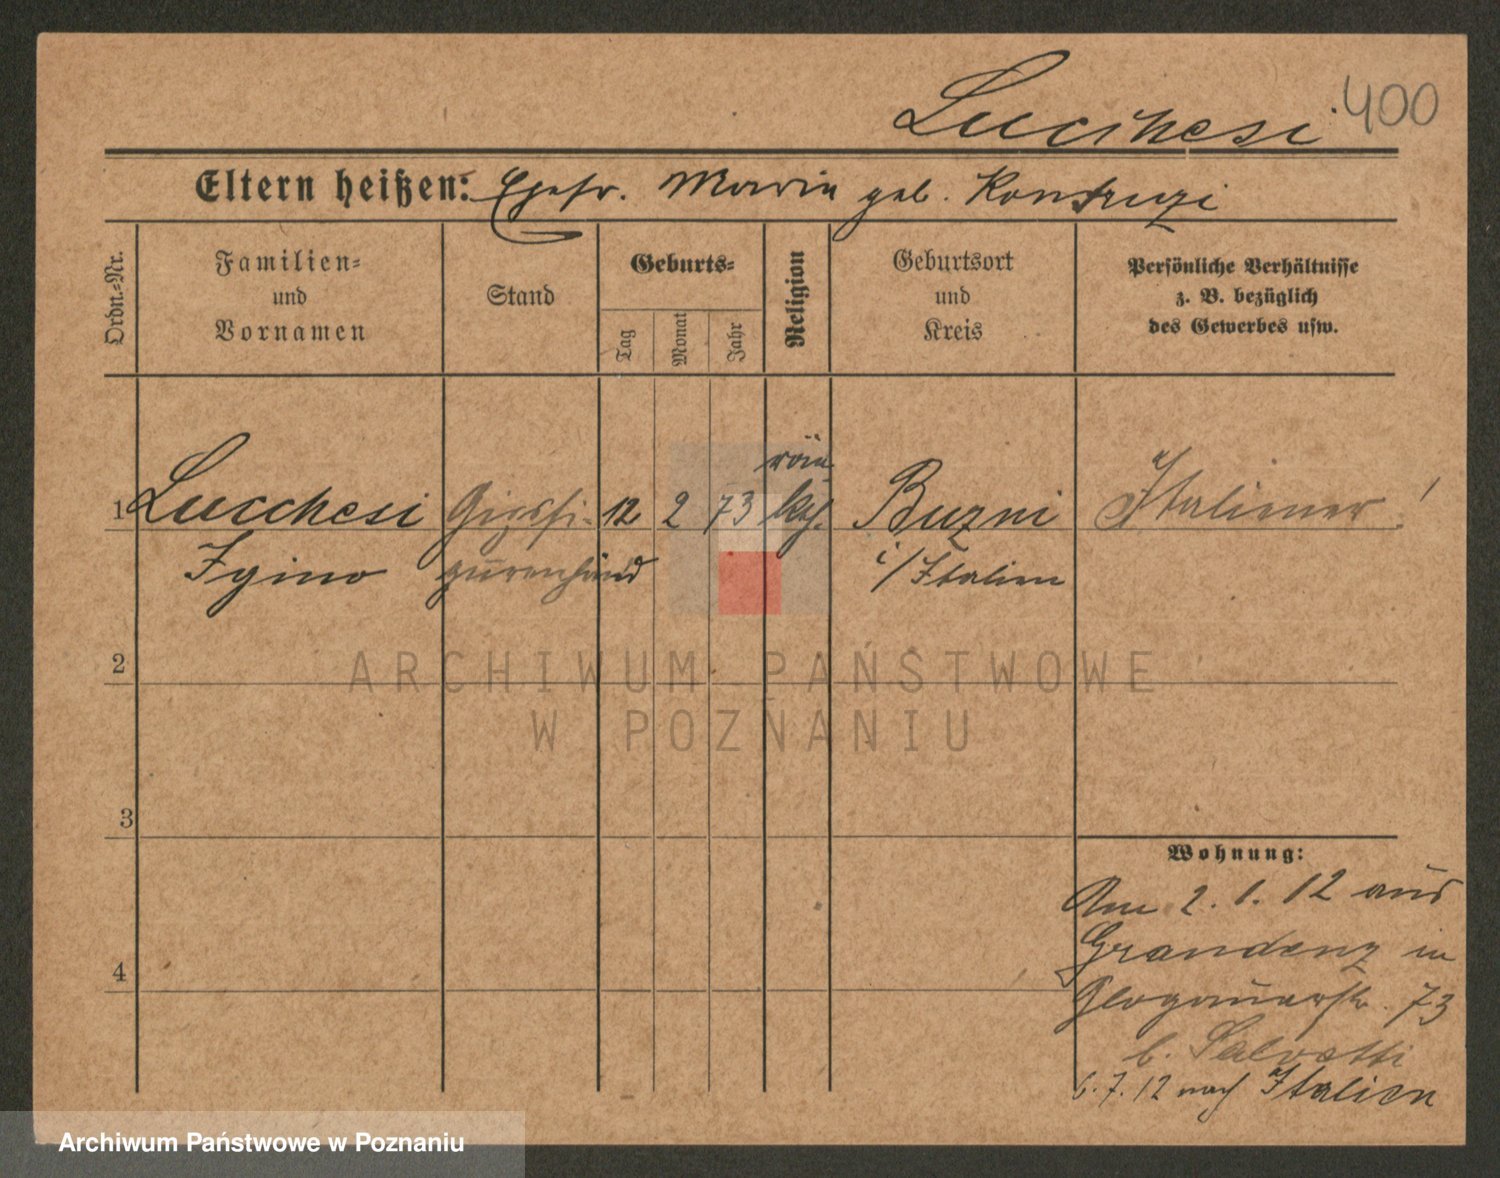 Lucchesi 400
Eltern heißen: Ehefr. Maria geb. Kontruzi
Ordn.-Nr.
Familien-
und
Vornamen
Stand
Geburts-
Tag
Monat
Jahr
Religion
Geburtsort
und
Kreis
Persönliche Verhältnisse
z. B. bezüglich
des Gewerbes usw.
röm.
1 Lucchesi Gipsfi- 12 2 73 kth. Buzni Italiener!
Igino gurenhänd i/Italien
2
ARCHIWUM PAŃSTWOWE
W POZNANIU
3
Wohnung:
Am 2.1.12 aus
4
Graudenz in
Glogauerstr. 73
b. Salvatti
6.7.12 nach Italien
Archiwum Państwowe w Poznaniu